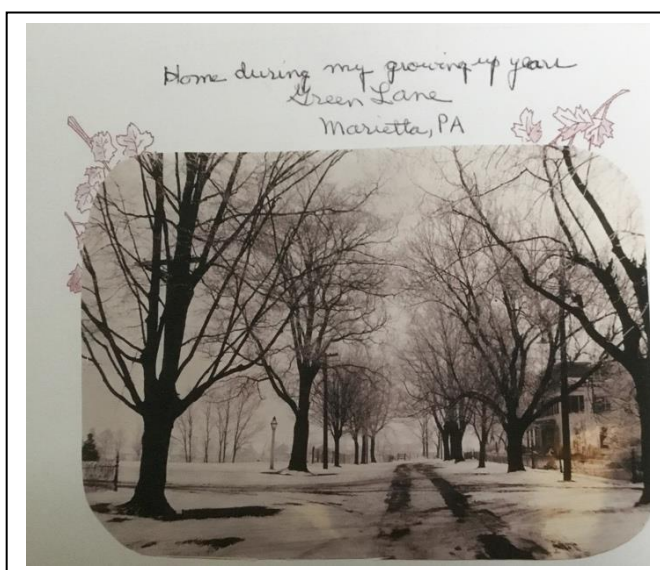 Home during my growing up years
Green Lane
Marietta, PA